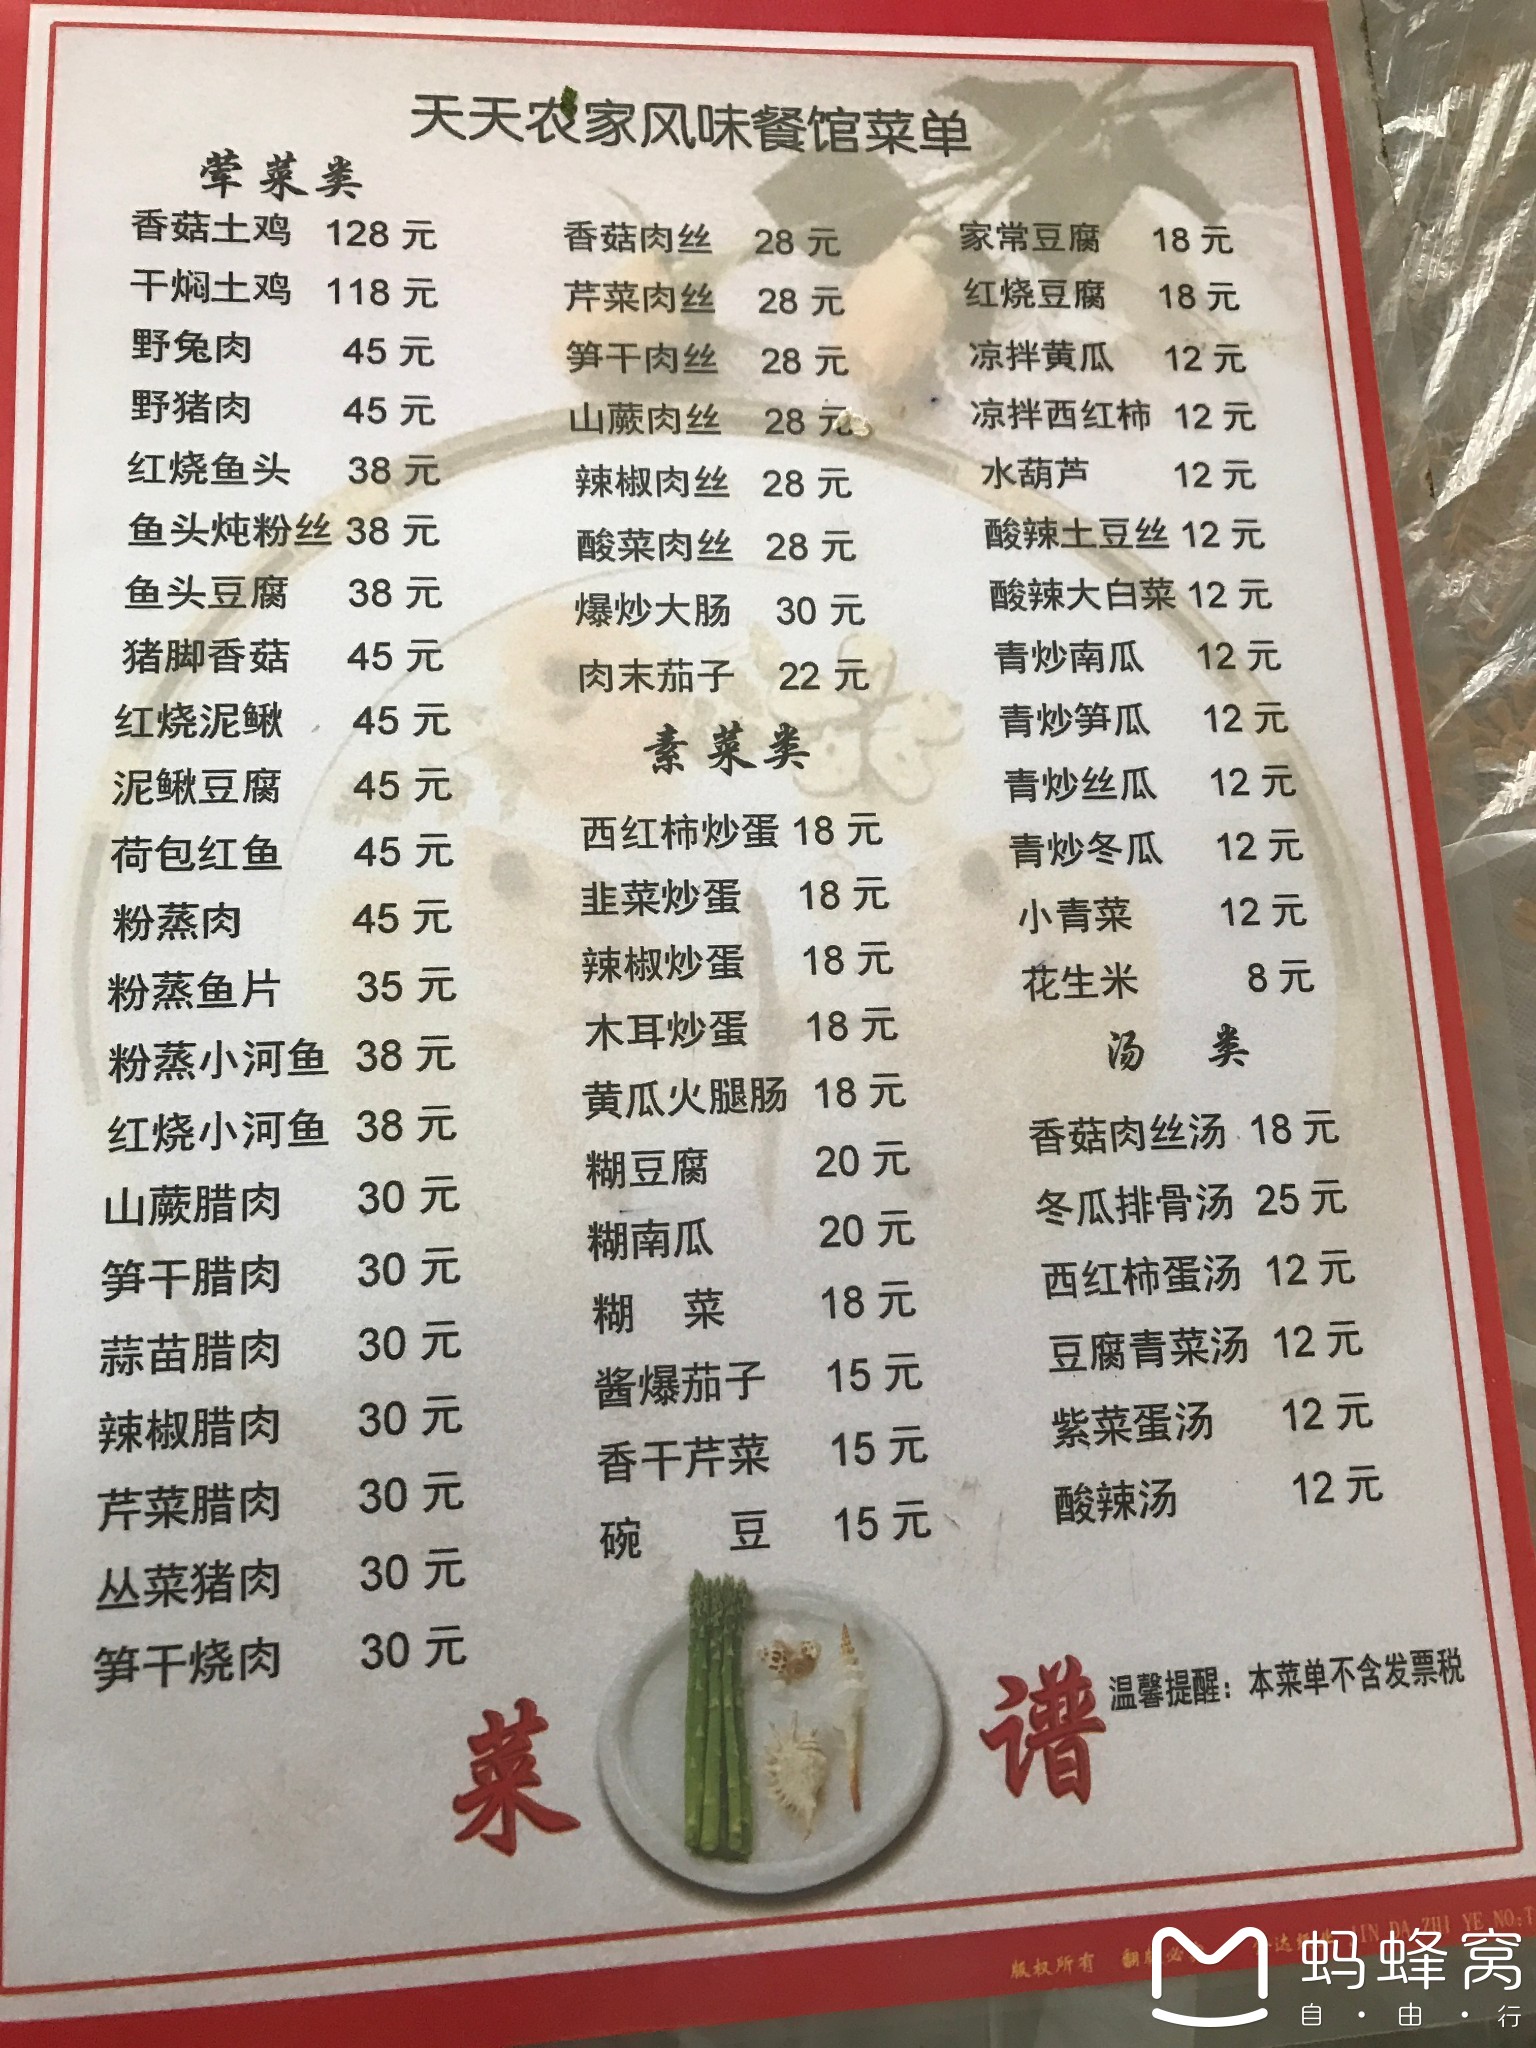 天天农家风味餐馆菜单
荤菜类
香菇土鸡 128 元
干焖土鸡 118 元
野兔肉 45 元
野猪肉 45 元
红烧鱼头 38 元
鱼头炖粉丝 38 元
鱼头豆腐 38 元
猪脚香菇 45 元
红烧泥鳅 45 元
泥鳅豆腐 45 元
荷包红鱼 45 元
粉蒸肉 45 元
粉蒸鱼片 35 元
粉蒸小河鱼 38 元
红烧小河鱼 38 元
山蕨腊肉 30 元
笋干腊肉 30 元
蒜苗腊肉 30 元
辣椒腊肉 30 元
芹菜腊肉 30 元
丛菜猪肉 30 元
笋干烧肉 30 元
香菇肉丝 28 元
芹菜肉丝 28 元
笋干肉丝 28 元
山蕨肉丝 28 元
辣椒肉丝 28 元
酸菜肉丝 28 元
爆炒大肠 30 元
肉末茄子 22 元
素菜类
西红柿炒蛋 18 元
韭菜炒蛋 18 元
辣椒炒蛋 18 元
木耳炒蛋 18 元
黄瓜火腿肠 18 元
糊豆腐 20 元
糊南瓜 20 元
糊 菜 18 元
酱爆茄子 15 元
香干芹菜 15 元
碗 豆 15 元
家常豆腐 18 元
红烧豆腐 18 元
凉拌黄瓜 12 元
凉拌西红柿 12 元
水葫芦 12 元
酸辣土豆丝 12 元
酸辣大白菜 12 元
青炒南瓜 12 元
青炒笋瓜 12 元
青炒丝瓜 12 元
青炒冬瓜 12 元
小青菜 12 元
花生米 8 元
汤 类
香菇肉丝汤 18 元
冬瓜排骨汤 25 元
西红柿蛋汤 12 元
豆腐青菜汤 12 元
紫菜蛋汤 12 元
酸辣汤 12 元
温馨提醒：本菜单不含发票税
菜 谱
版权所有 翻版必 JIN DA ZHI YE NO:T
蚂蜂窝
自·由·行